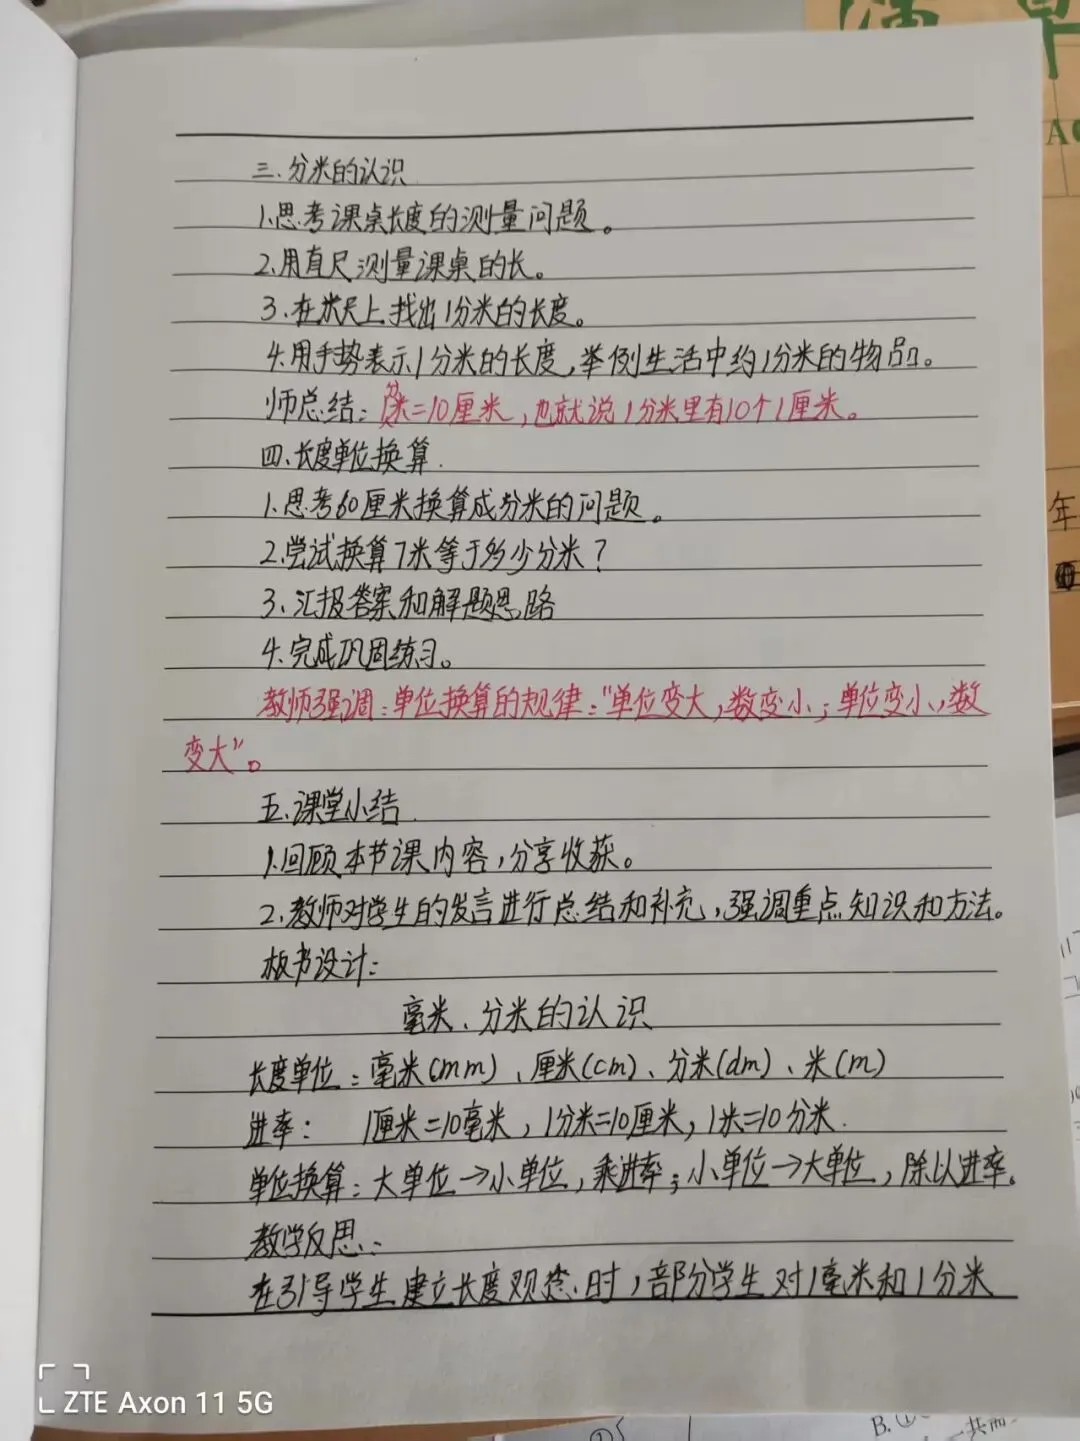 三.分米的认识
1.思考课桌长度的测量问题。
2.用直尺测量课桌的长。
3.在米尺上找出1分米的长度。
4.用手势表示1分米的长度,举例生活中约1分米的物品。
师总结:1分米=10厘米,也就说1分米里有10个1厘米。
四.长度单位换算.
1.思考60厘米换算成分米的问题。
2.尝试换算7米等于多少分米?
3.汇报答案和解题思路
4.完成巩固练习。
教师强调:单位换算的规律:"单位变大,数变小;单位变小,数
变大"。
五.课堂小结.
1.回顾本节课内容,分享收获。
2.教师对学生的发言进行总结和补充,强调重点知识和方法。
板书设计:
毫米、分米的认识
长度单位:毫米(mm)、厘米(cm)、分米(dm)、米(m)
进率: 1厘米=10毫米,1分米=10厘米,1米=10分米.
单位换算:大单位→小单位,乘进率;小单位→大单位,除以进率。
教学反思:
在引导学生建立长度观念时,部分学生对1毫米和1分米
ZTE Axon 11 5G
年
B.①
一共需